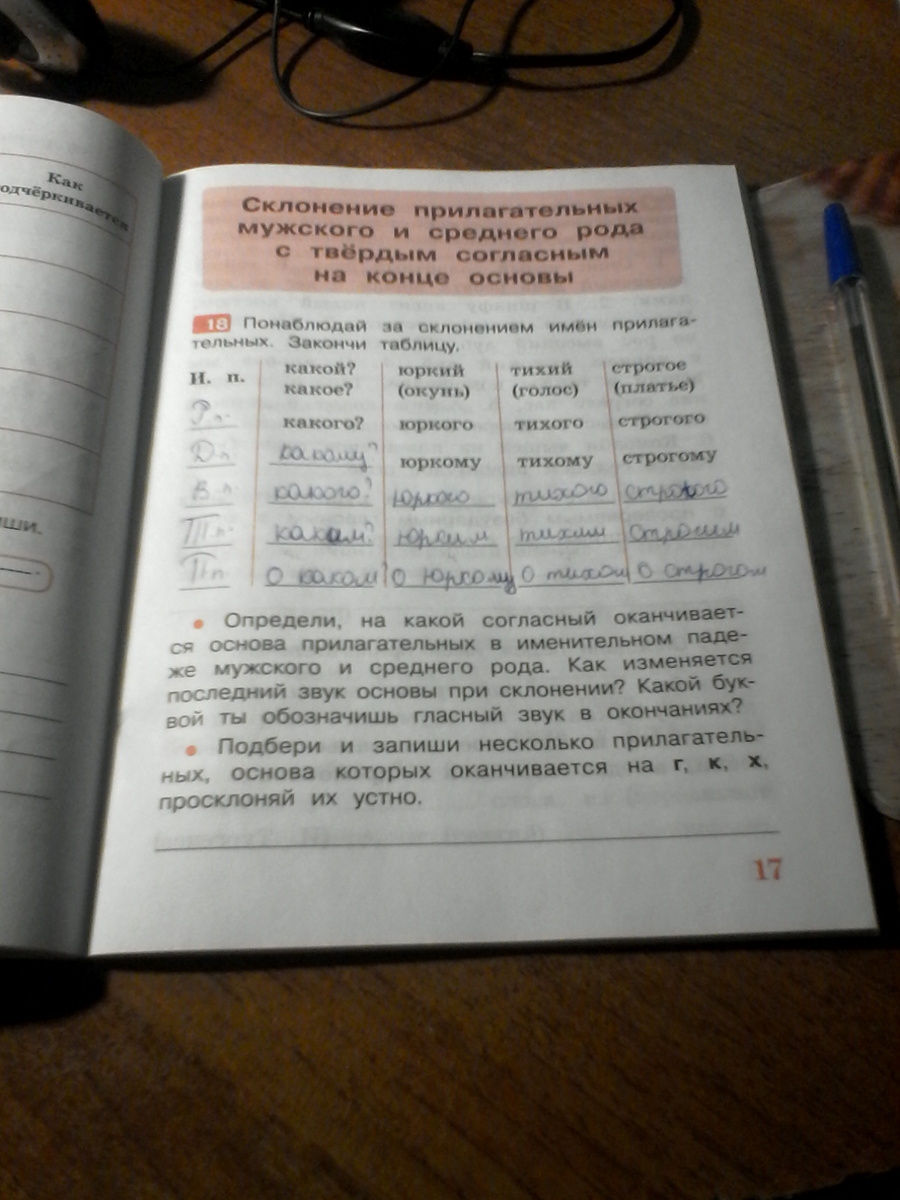 Как
одчёркивается
ши.
Склонение прилагательных
мужского и среднего рода
с твёрдым согласным
на конце основы
18 Понаблюдай за склонением имён прилага-
тельных. Закончи таблицу.
И. п. какой? какое? юркий (окунь) тихий (голос) строгое (платье)
Р п. какого? юркого тихого строгого
Д п. какому? юркому тихому строгому
В п. какого? юркого тихого строгого
Т п. каким? юрким тихим строгим
П п. о каком? о юркому о тихом о строгом
• Определи, на какой согласный оканчивает-
ся основа прилагательных в именительном паде-
же мужского и среднего рода. Как изменяется
последний звук основы при склонении? Какой бук-
вой ты обозначишь гласный звук в окончаниях?
• Подбери и запиши несколько прилагатель-
ных, основа которых оканчивается на г, к, х,
просклоняй их устно.
17